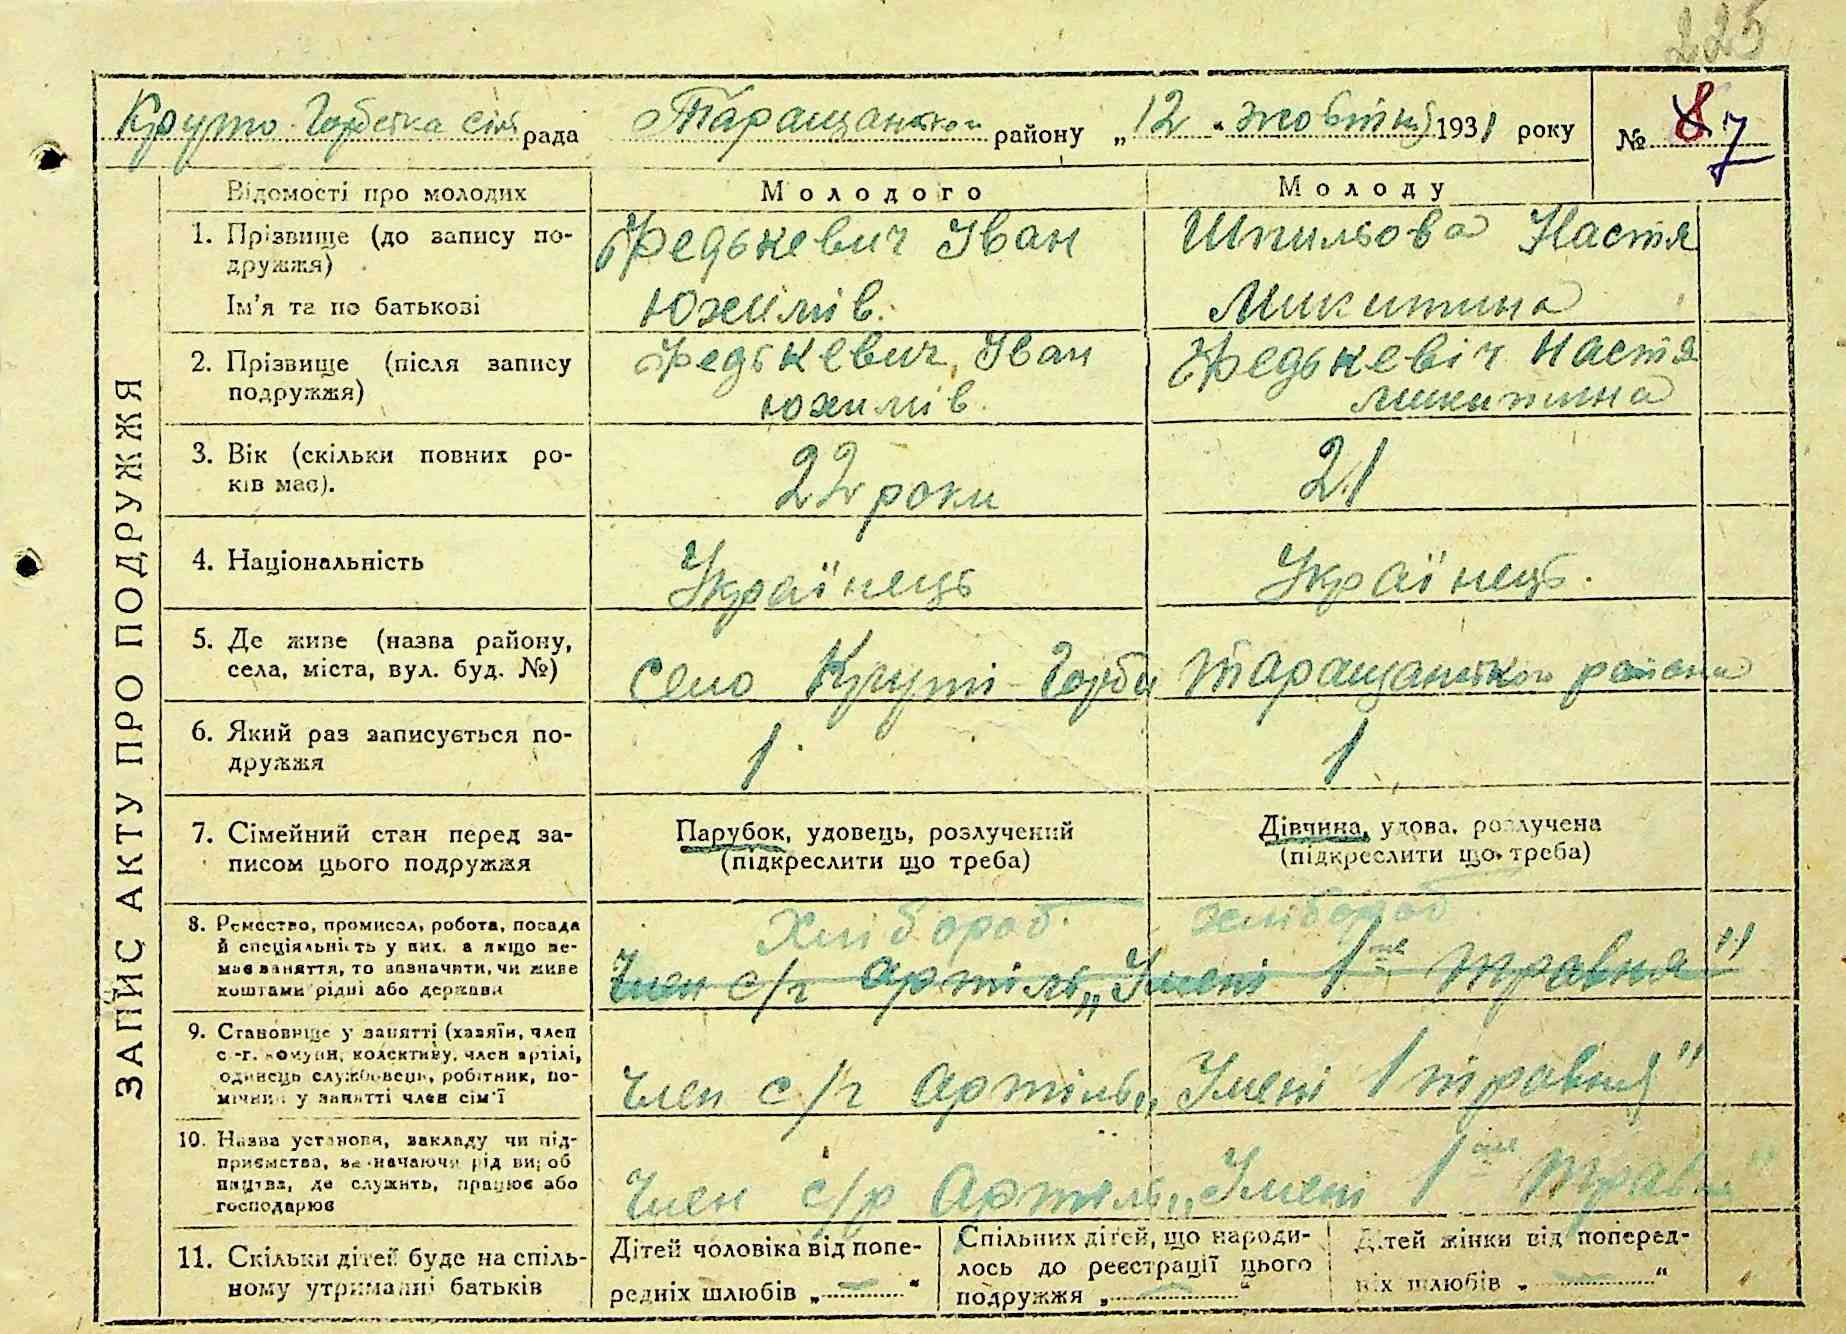 225
Круто-Горбська сіль рада Таращанського району „12" жовтня 1931 року № 8 7
ЗАПИС АКТУ ПРО ПОДРУЖЖЯ
Відомості про молодих Молодого Молоду
1. Прізвище (до запису по-
дружжя)
Ім'я та по батькові
Федькевич Іван
Юхимів.
Шпильова Настя
Микитина
2. Прізвище (після запису
подружжя)
Федькевич, Іван
Юхимів.
Федькевіч Настя
Микитина
3. Вік (скільки повних ро-
ків має).
22 роки
21
4. Національність
Українець
Українець.
5. Де живе (назва району,
села, міста, вул. буд. №)
село Круті-Горби Таращанського района
6. Який раз записується по-
дружжя
1
1
7. Сімейний стан перед за-
писом цього подружжя
Парубок, удовець, розлучений
(підкреслити що треба)
Дівчина, удова, розлучена
(підкреслити що треба)
8. Ремество, промисел, робота, посада
й спеціяльність у них, а якщо не-
має заняття, то зазначити, чи живе
коштами рідні або держави
Хлібороб. хлібороб
Член с/г артіль „Імені 1ше травня"
9. Становище у занятті (хазяїн, член
с.-г. комуни, колективу, член артілі,
одинець службовець, робітник, по-
мічник у занятті член сім'ї
Член с/г артіль „Імені 1 травня"
10. Назва установи, закладу чи під-
приємства, зазначаючи рід вироб
ництва, де служить, працює або
господарює
Член с/г артіль „Імені 1ше травня"
11. Скільки дітей буде на спіль-
ному утриманні батьків
Дітей чоловіка від попе-
редніх шлюбів „ — "
Спільних дітей, що народи-
лось до реєстрації цього
подружжя „ — "
Дітей жінки від поперед-
ніх шлюбів „ — "